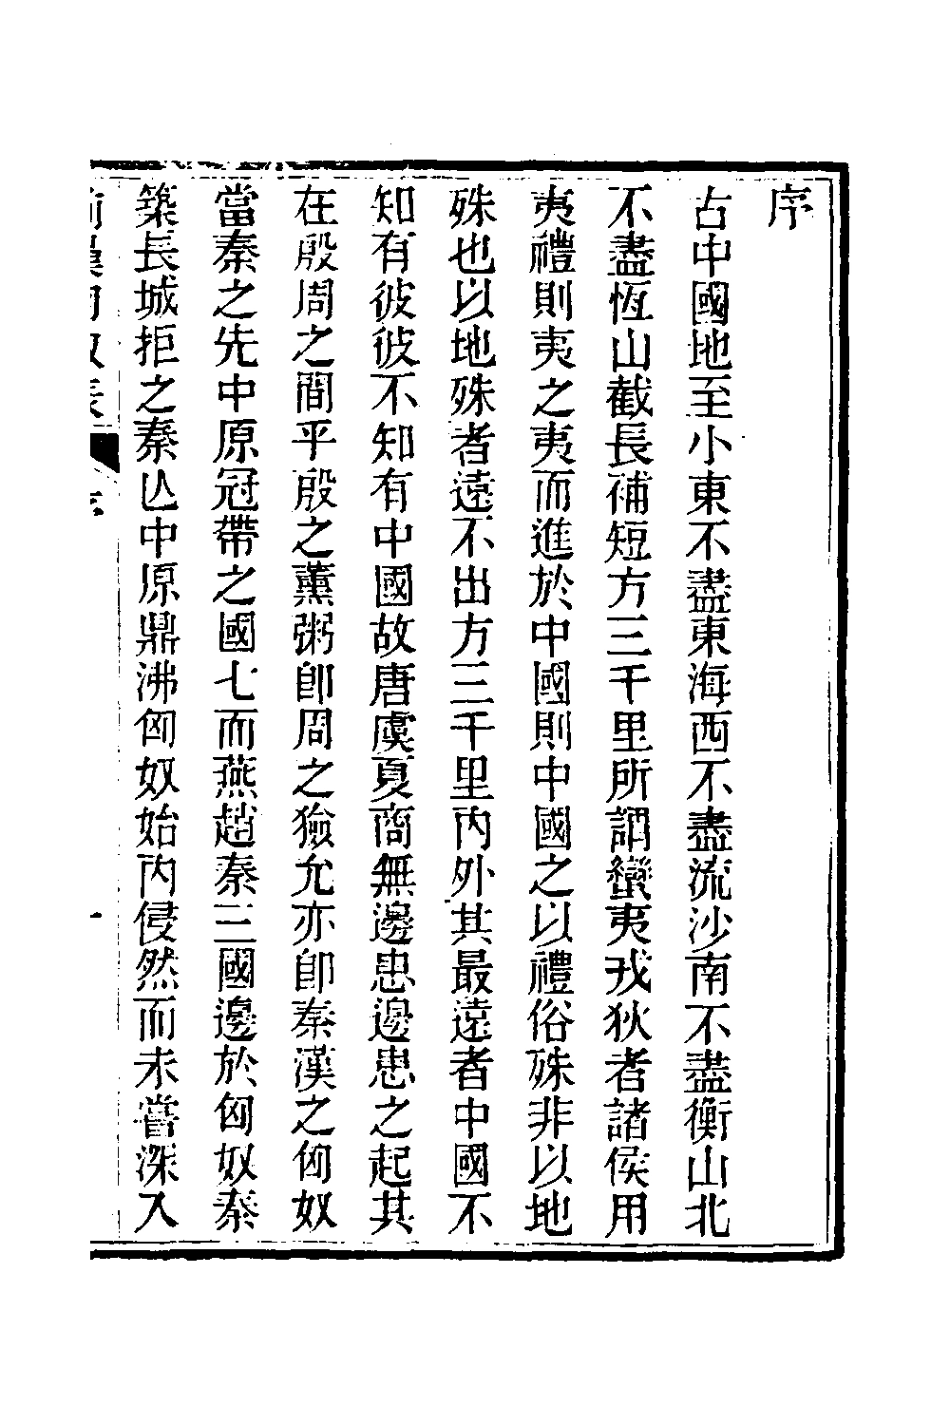 序
古中國地至小東不盡東海西不盡流沙南不盡衡山北
不盡恆山截長補短方三千里所謂蠻夷戎狄者諸侯用
夷禮則夷之夷而進於中國則中國之以禮俗殊非以地
殊也以地殊者遠不出方三千里內外其最遠者中國不
知有彼彼不知有中國故唐虞夏商無邊患邊患之起其
在殷周之間乎殷之薰粥卽周之獫允亦卽秦漢之匈奴
當秦之先中原冠帶之國七而燕趙秦三國邊於匈奴秦
築長城拒之秦亾中原鼎沸匈奴始內侵然而未嘗深入